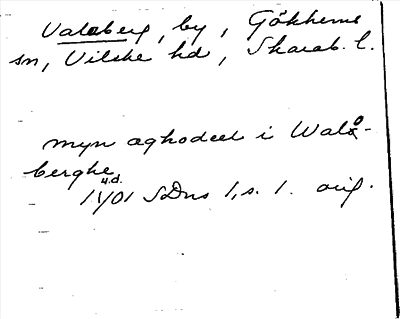 Valaberg, by, Gökhems
sn, Vilske hd, Skarab. l.
myn æghodeel i Wala-
berghe
u.d.
1401 SDns 1, s. 1. orig.